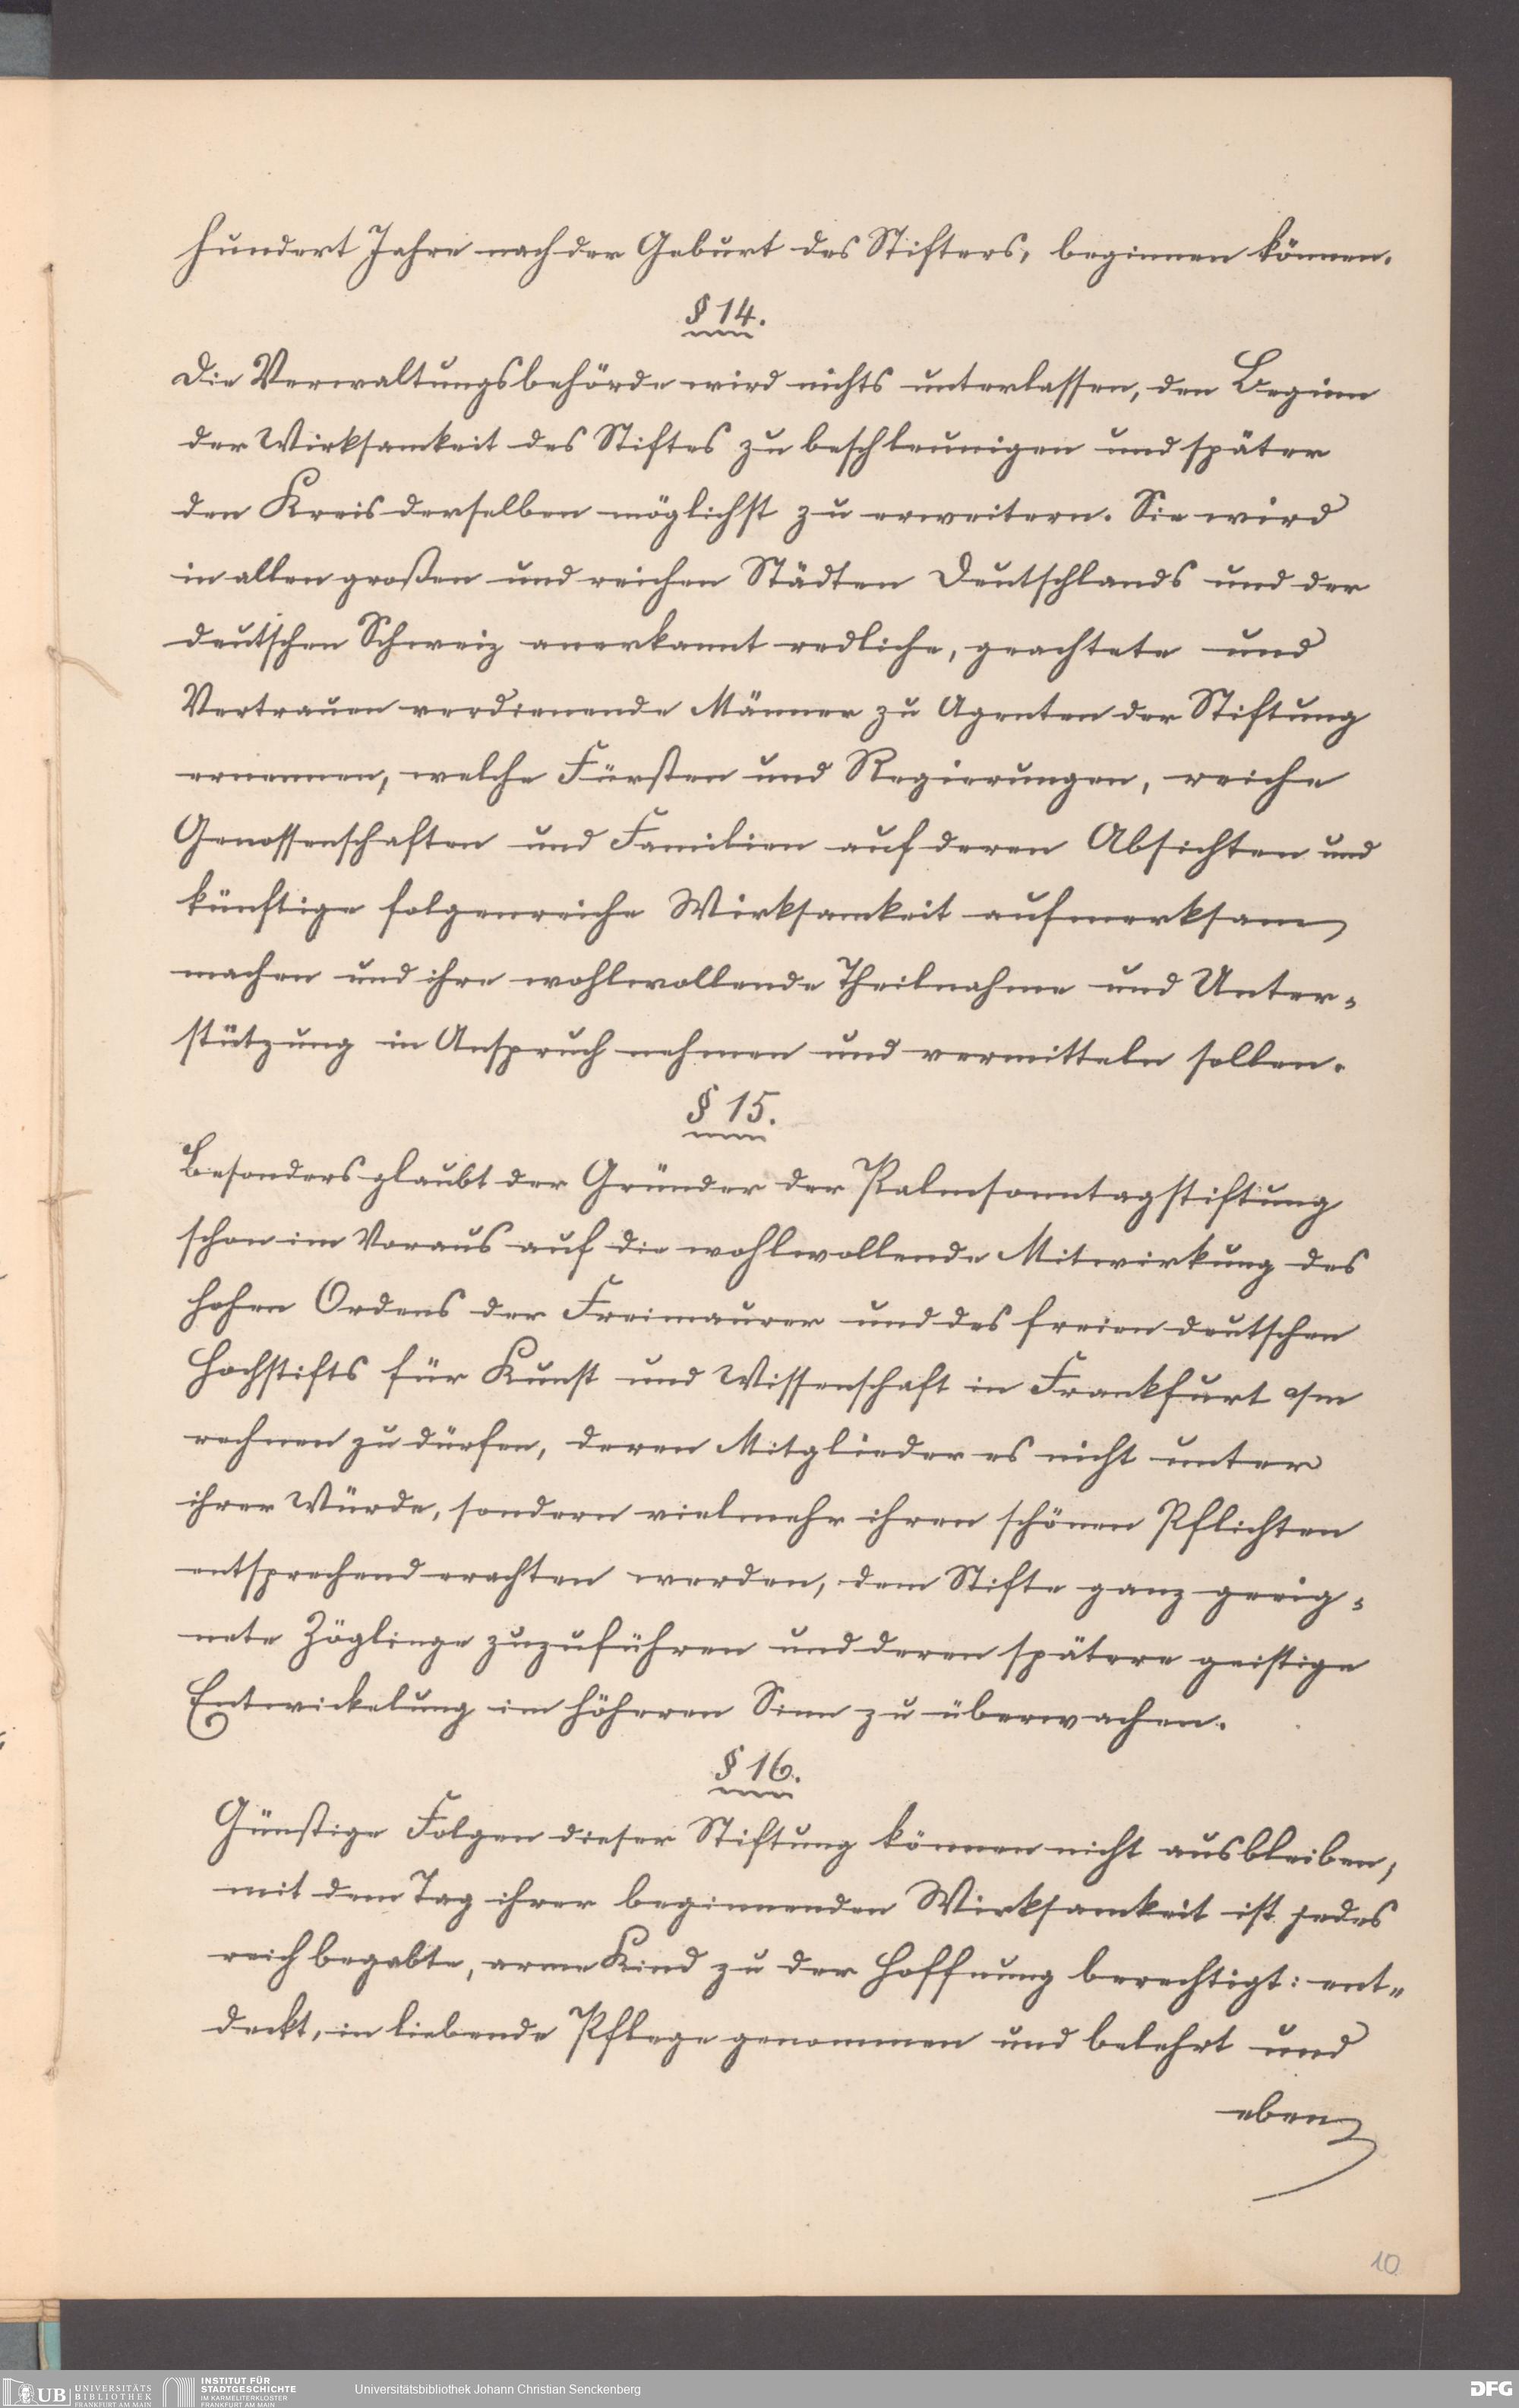 hundert Jahre nach der Geburt des Stifters, beginnen können.
§ 14.
Die Verwaltungsbehörde wird nichts unterlassen, den Beginn
der Wirksamkeit des Stiftes zu beschleunigen und später
den Kreis derselben möglichst zu erweitern. Sie wird
in allen großen und reichen Städten Deutschlands und der
deutschen Schweiz anerkannt redliche, geachtete und
Vertrauen verdienende Männer zu Agenten der Stiftung
ernennen, welche Fürsten und Regierungen, reiche
Genossenschaften und Familien auf deren Absichten und
künftige folgenreiche Wirksamkeit aufmerksam
machen und ihre wohlwollende Theilnahme und Unter-
stützung in Anspruch nehmen und vermitteln sollen.
§ 15.
Besonders glaubt der Gründer der Palmsonntagstiftung
schon im Voraus auf die wohlwollende Mitwirkung des
hohen Ordens der Freimaurer und des freien deutschen
Hochstifts für Kunst und Wissenschaft in Frankfurt a/m
rechnen zu dürfen, deren Mitglieder es nicht unter
ihrer Würde, sondern vielmehr ihren schönen Pflichten
entsprechend erachten werden, dem Stifte ganz geeig-
nete Zöglinge zuzuführen und deren spätere geistige
Entwickelung im höheren Sinn zu überwachen.
§ 16.
Günstige Folgen dieser Stiftung können nicht ausbleiben,
mit dem Tag ihrer beginnenden Wirksamkeit ist jedes
reich begabte, arme Kind zu der Hoffnung berechtigt: ent-
deckt, in liebende Pflege genommen und belehrt und
eben
10
UB UNIVERSITÄTS
BIBLIOTHEK
FRANKFURT AM MAIN
INSTITUT FÜR
STADTGESCHICHTE
IM KARMELITERKLOSTER
FRANKFURT AM MAIN
Universitätsbibliothek Johann Christian Senckenberg
DFG